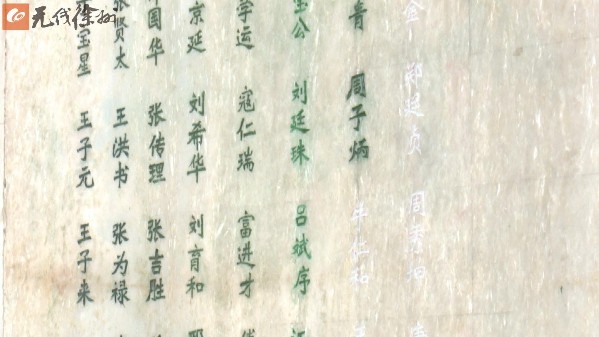 无线徐州
金 周
青 周子炳 仁和
公 刘廷珠 吕斌序
学运 寇仁瑞 富进才
京延 刘希华 刘育和
国华 张传理 张吉胜
贤太 王洪书 张为禄
宝星 王子元 王子来